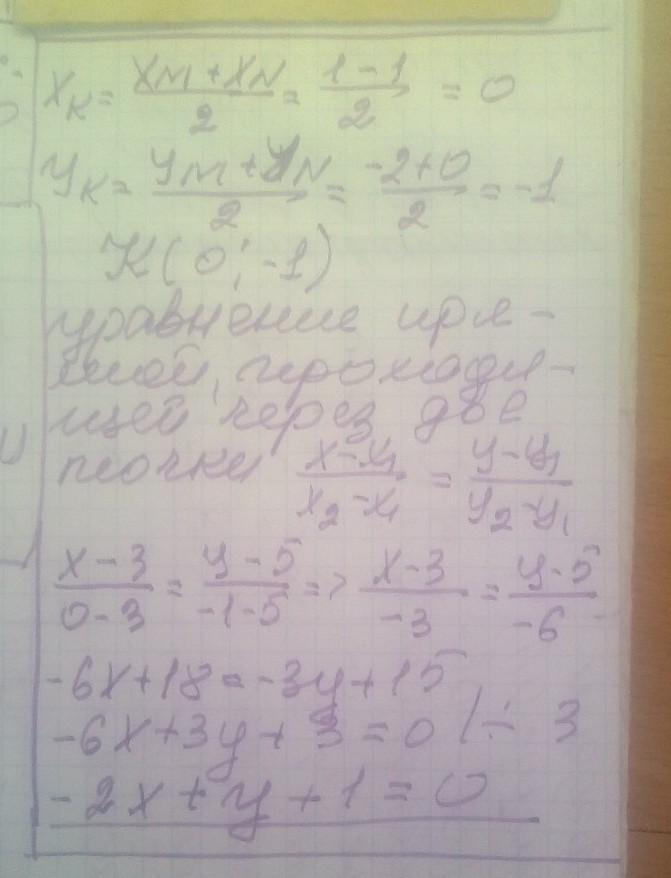 Xк = (Xм + XN)/2 = (1 - 1)/2 = 0
Yк = (Yм + YN)/2 = (-2 + 0)/2 = -1
K(0; -1)
уравнение пря-
мой, проходя-
щей через две
точки (x - x₁)/(x₂ - x₁) = (y - y₁)/(y₂ - y₁)
(x - 3)/(0 - 3) = (y - 5)/(-1 - 5) => (x - 3)/(-3) = (y - 5)/(-6)
-6x + 18 = -3y + 15
-6x + 3y + 3 = 0 | ÷ 3
-2x + y + 1 = 0